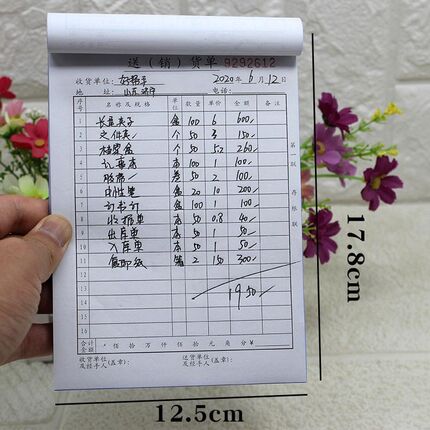 送(销)货单 9292612
收货单位: 好帮手 2020年6月12日
地 址: 山东济宁 电话:
序号 名称及规格 单位 数量 单价 金额 备注
1 长尾夹子 盒 100 6 600/
2 文件夹 个 50 3 150/
3 档案盒 个 50 5.2 260/
4 记事本 本 100 1 100/
5 胶带 卷 50 2 100/
6 中性笔 盒 20 10 200/
7 订书钉 盒 100 1 100/
8 收据单 本 50 0.8 40/
9 出库单 本 50 1 50/
10 入库单 本 50 1 50/
11 复印纸 箱 2 150 300/
12
13
14 1950/
15
16
合计金额 佰 拾 万 仟 佰 拾 元 角 分 ¥
收货单位及经手人(盖章): 送货单位及经手人(盖章):
第 联 存根联
17.8cm
12.5cm